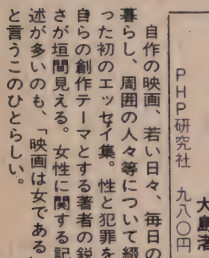 大島渚
PHP研究社　九八〇円
自作の映画、若い日々、毎日の
暮らし、周囲の人々等について綴
った初のエッセイ集。性と犯罪を
自らの創作テーマとする著者の鋭
さが垣間見える。女性に関する記
述が多いのも、「映画は女である」
と言うこのひとらしい。